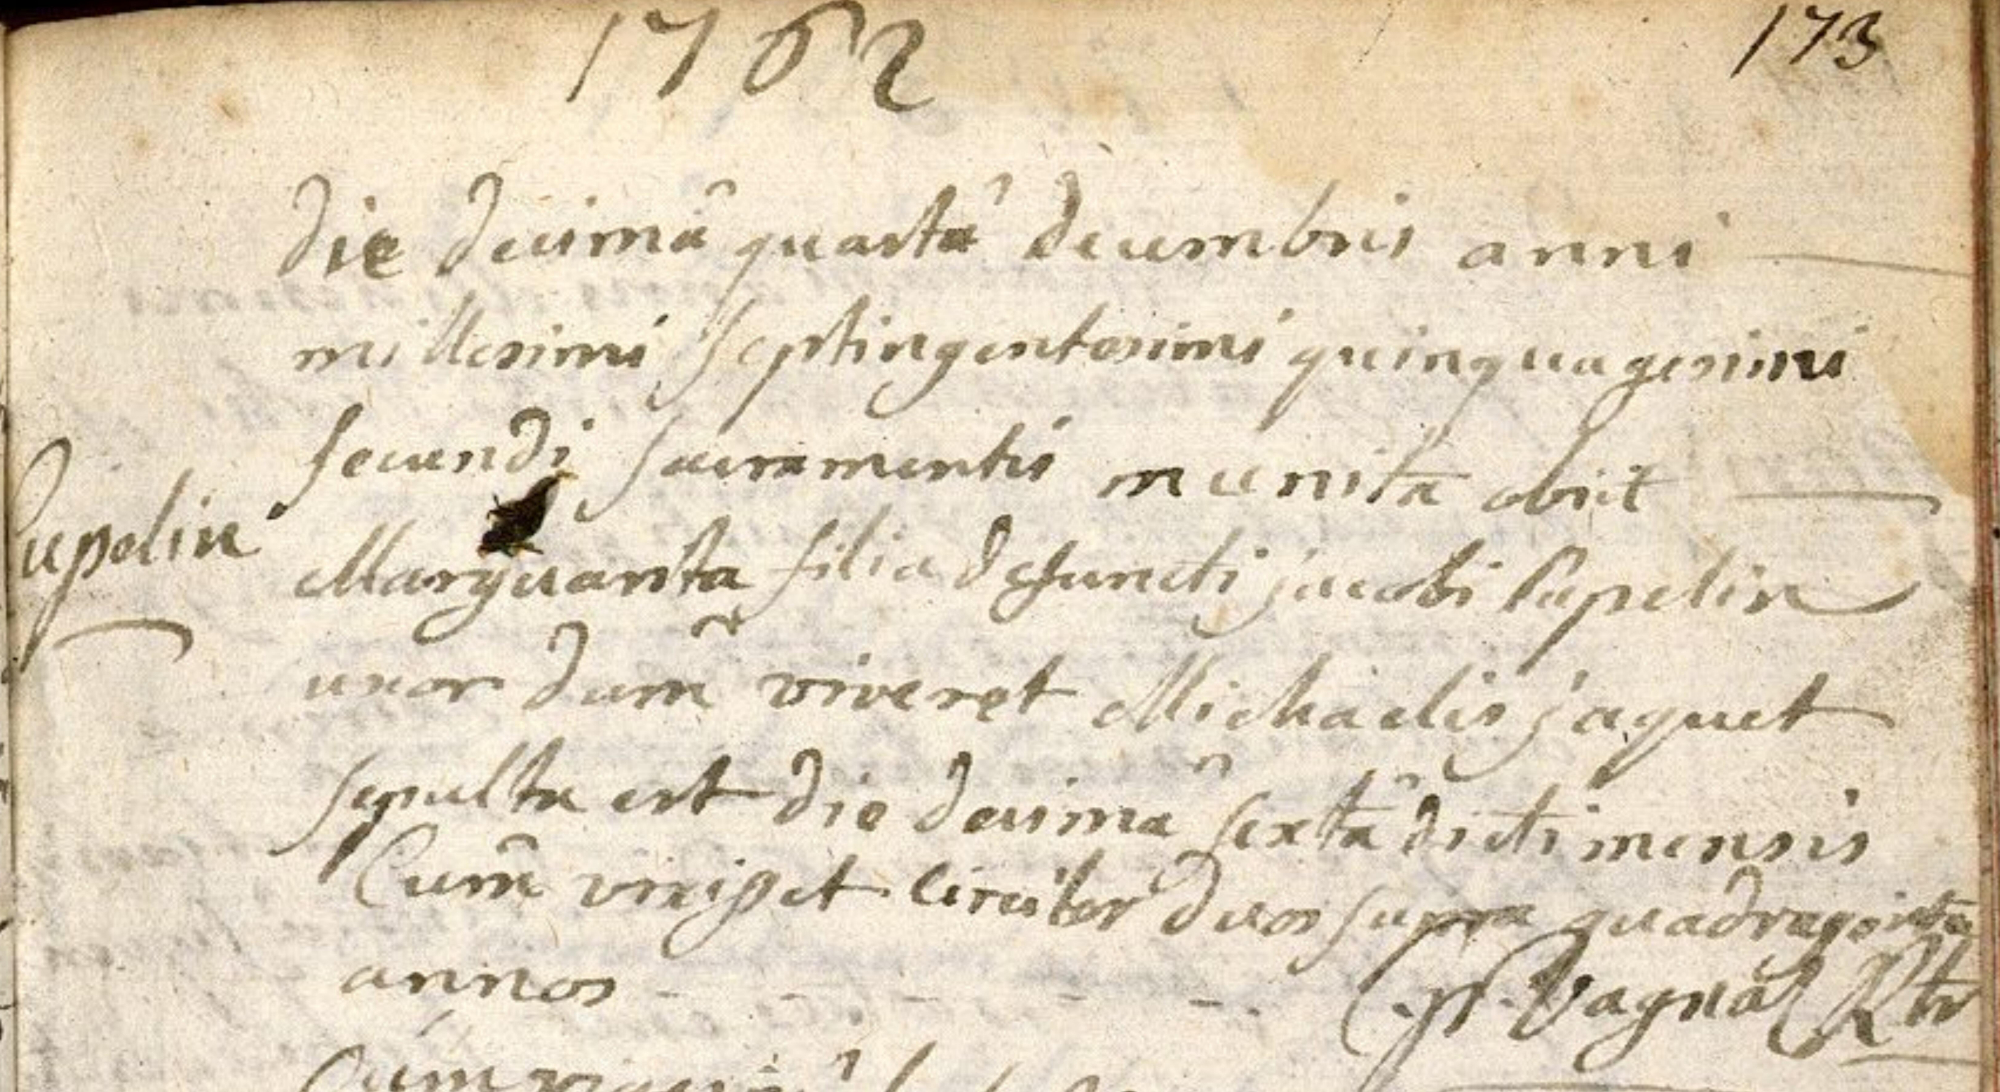 1762
173
die decimâ quartâ decembris anni
millesimi septingentesimi quinquagesimi
secundi sacramentis munita obiit
Pupelin
Marguarita filia defuncti jacobi Pupelin
uxor dum̃ viveret Michaelis jaquet
sepulta est die decimâ sextâ dicti mensis
Cum̃ vixisset circiter duos supra quadraginta
annos